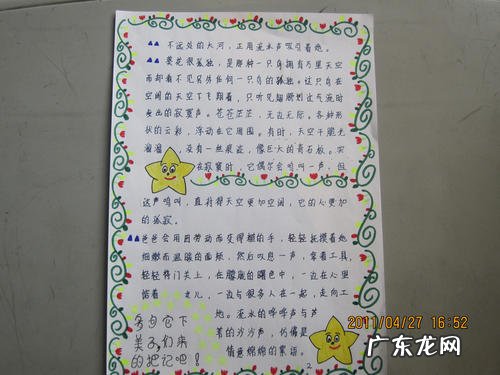 不远处的大河,正用流水声吸引着她。
葵花很孤独,是那种一只鸟拥有万里天空
而却看不见另外任何一只鸟的孤独。这只鸟在
空阔的天空下飞翔着,只听见翅膀划过气流时
发出的寂寞声。苍苍茫茫,无边无际。各种形
状的云彩,浮动在它周围。有时,天空干脆光
溜溜,没有一丝痕迹,像巨大的青石板。实
在寂寞时,它偶尔会鸣叫一声,但
这声鸣叫,直衬得天空更加空阔,它的心更加
的孤寂。
爸爸会用因劳动而变得粗糙的手,轻轻抚摸着她
细嫩而温暖的面颊,然后叹息一声,拿着工具,
轻轻将门关上,在朦胧的曙色中,一边在心里
惦着女儿,一边与很多人在一起,走向工
地。流水的哗哗声与芦
苇的沙沙声,仿佛是
情意绵绵的絮语。
多句它下
美子,们来
的把记吧!
2
2011/04/27 16:52
广东龙网